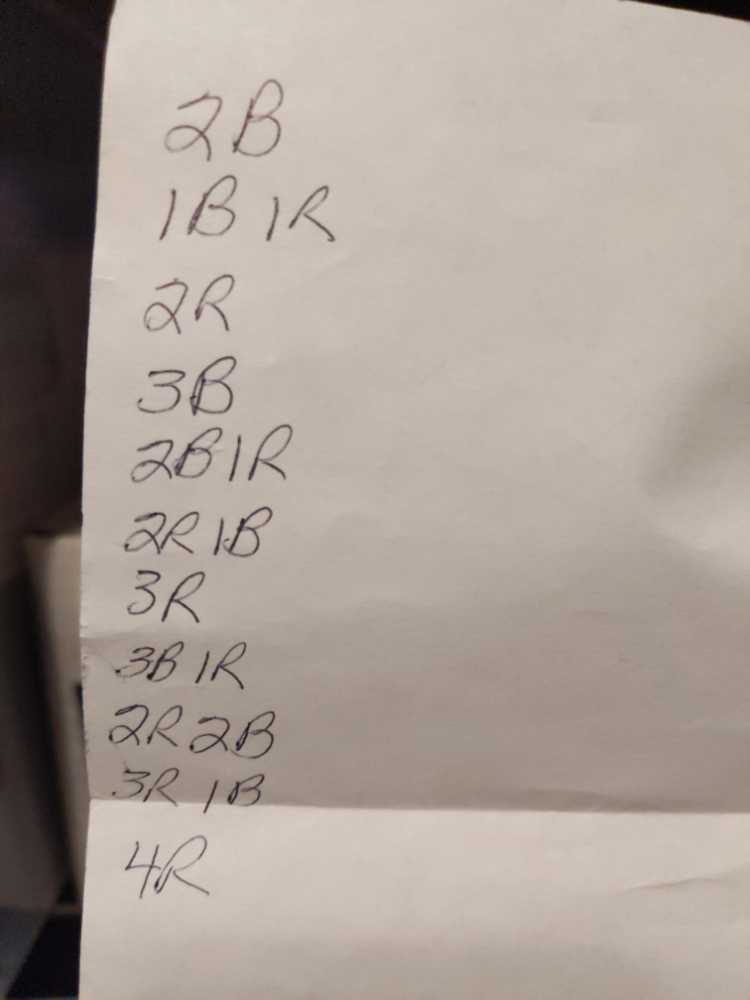 2B
1B 1R
2R
3B
2B1R
2R1B
3R
3B1R
2R2B
3R 1B
4R